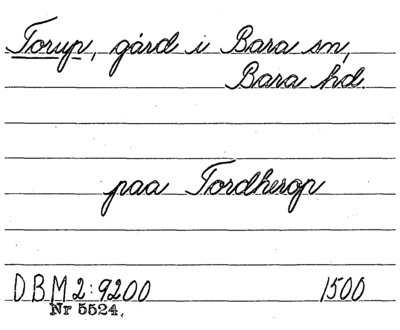 Torup, gård i Bara sn,
Bara hd.
paa Tordherop
DBM 2:9200 1500
Nr 5524,